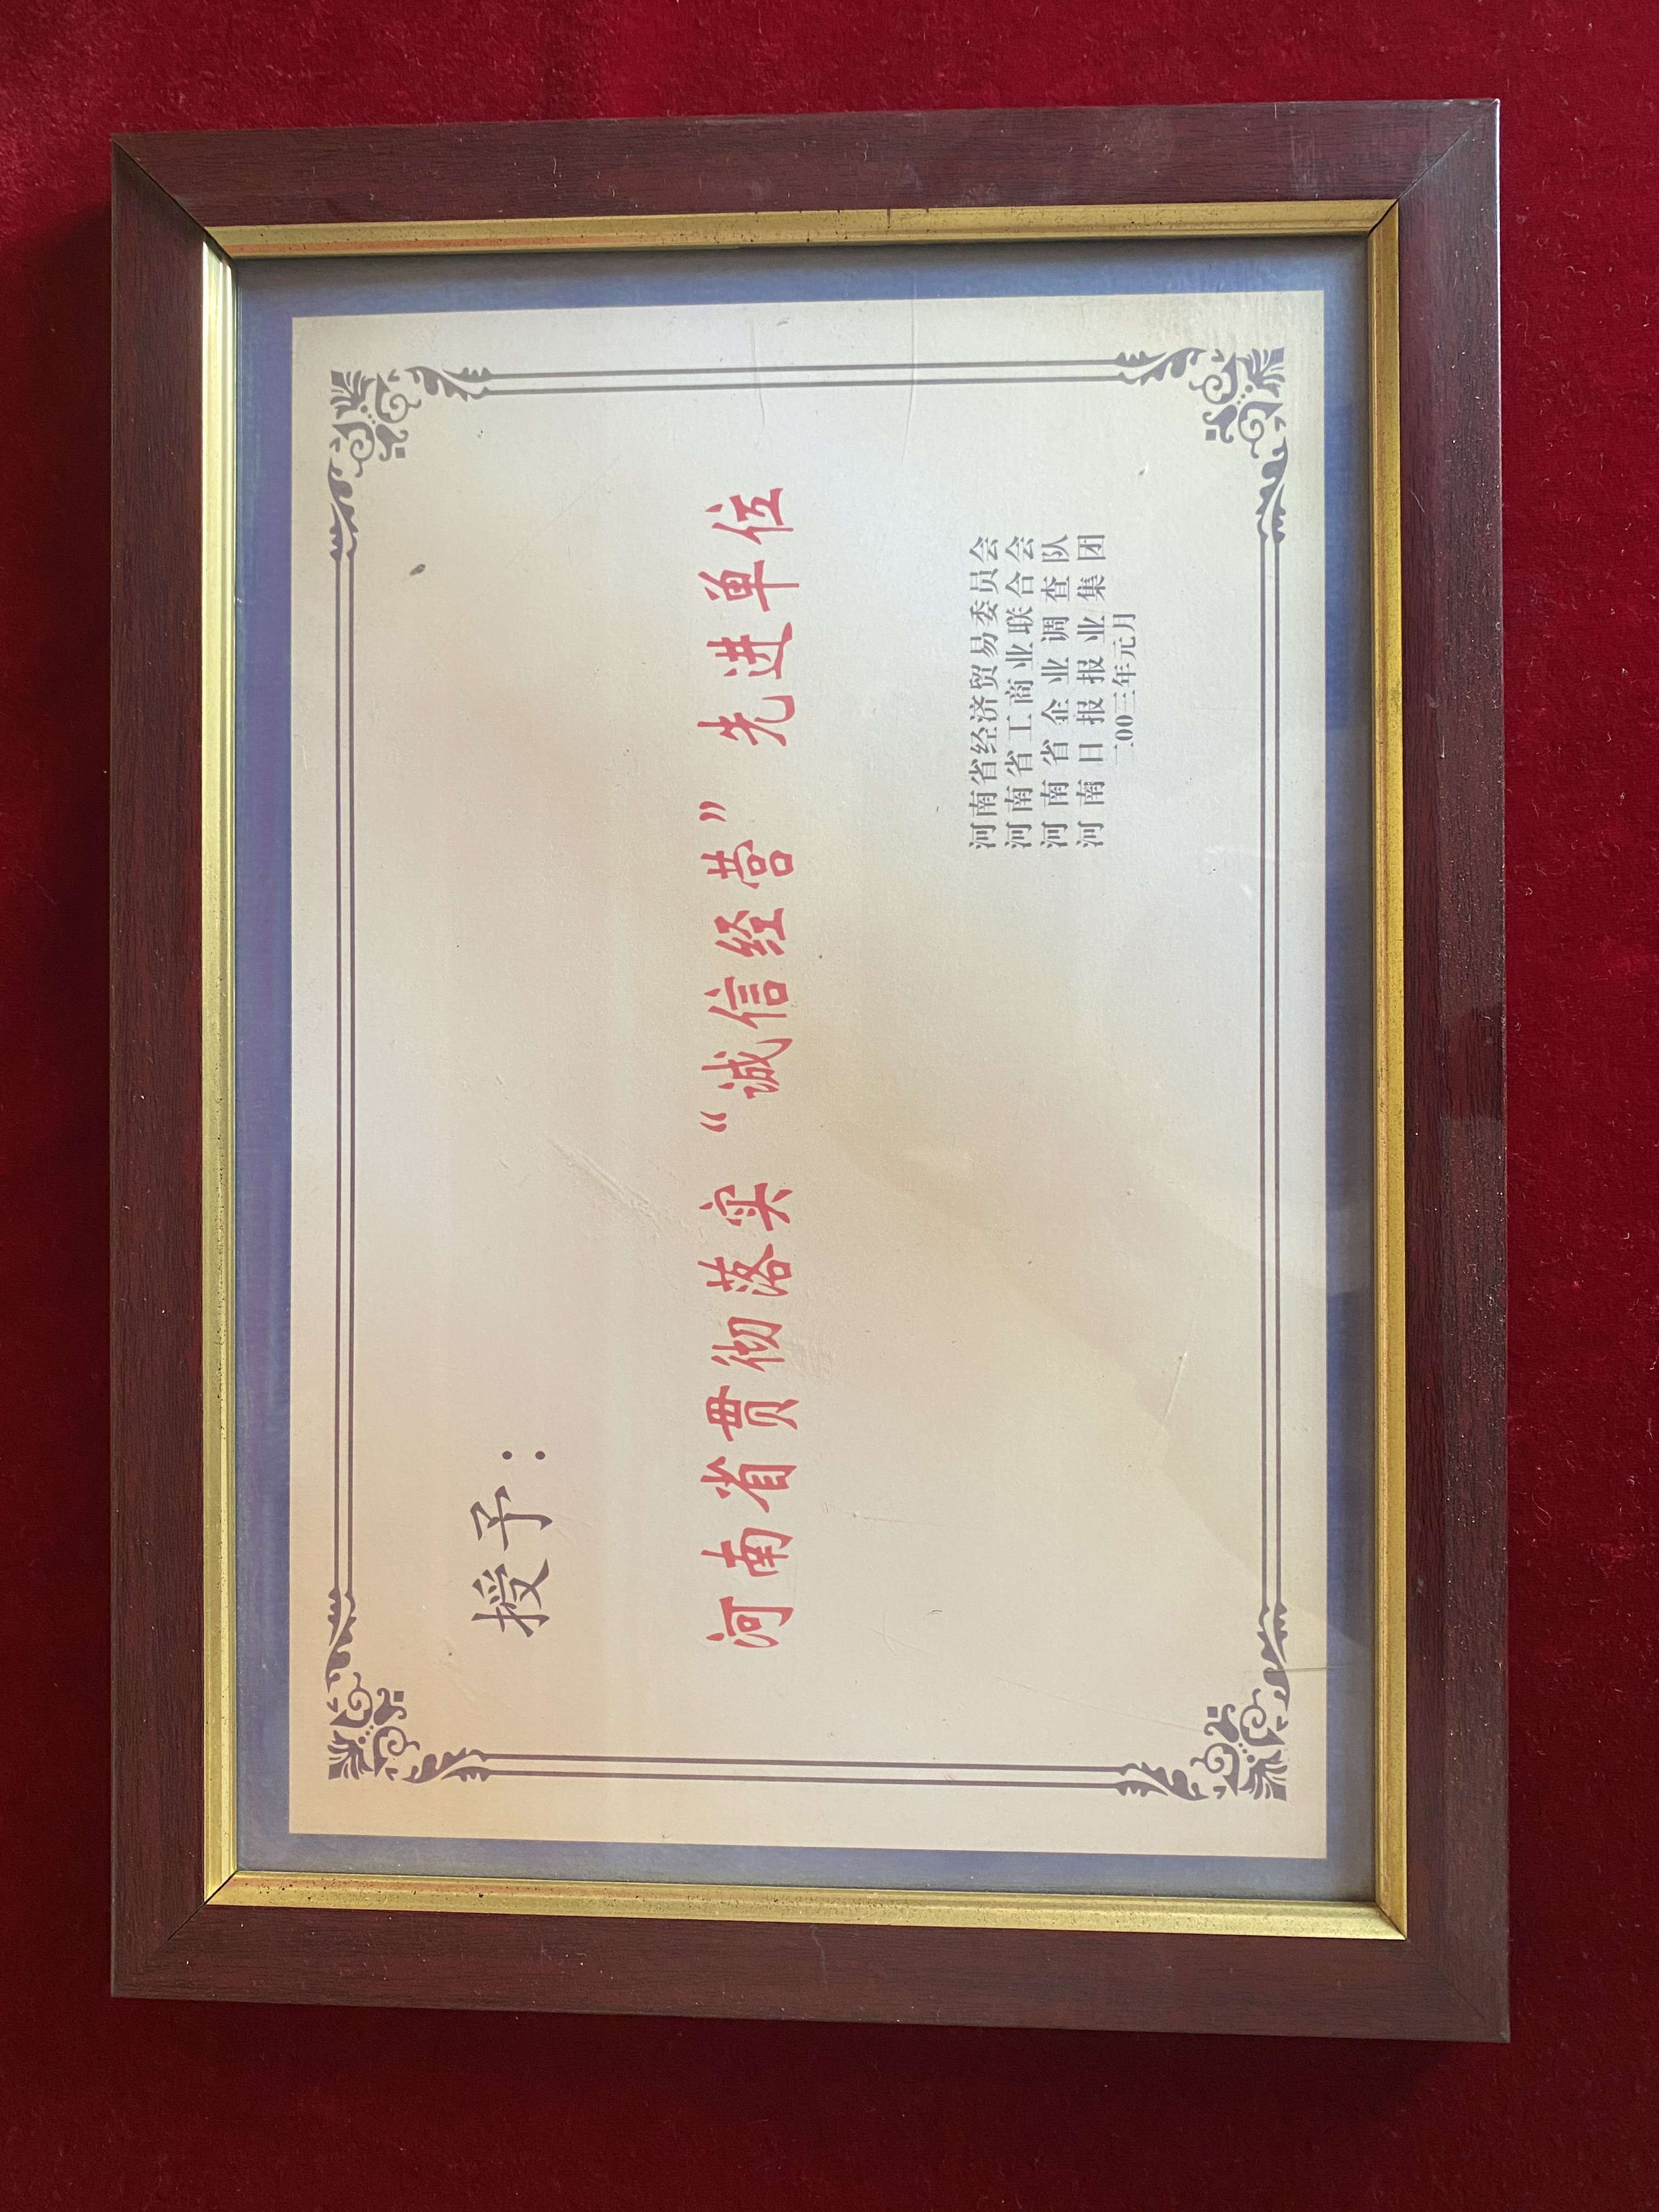 授予：
河南省贯彻落实“诚信经营”先进单位
河南省经济贸易委员会
河南省工商业联合会
河南省企业调查队
河南日报报业集团
二00三年元月